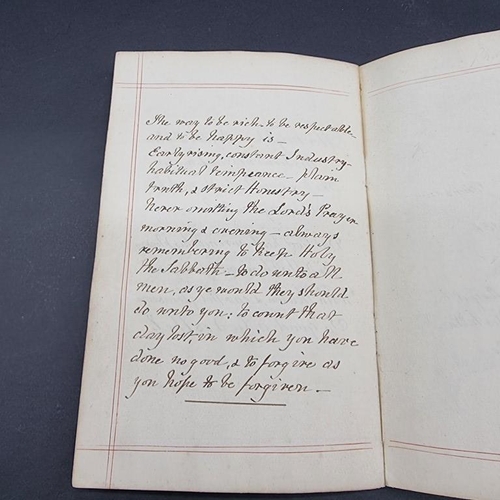 The way to be rich - to be respectable -
and to be happy is -
Early rising, constant Industry -
habitual temperance - plain
truth, & strict Honestry -
Never omitting the Lord's Prayer
morning & evening - always
remembering to keep Holy
the Sabbath - to do unto all
men, as ye would they should
do unto you; to count that
day lost, in which you have
done no good, & to forgive as
you hope to be forgiven. -